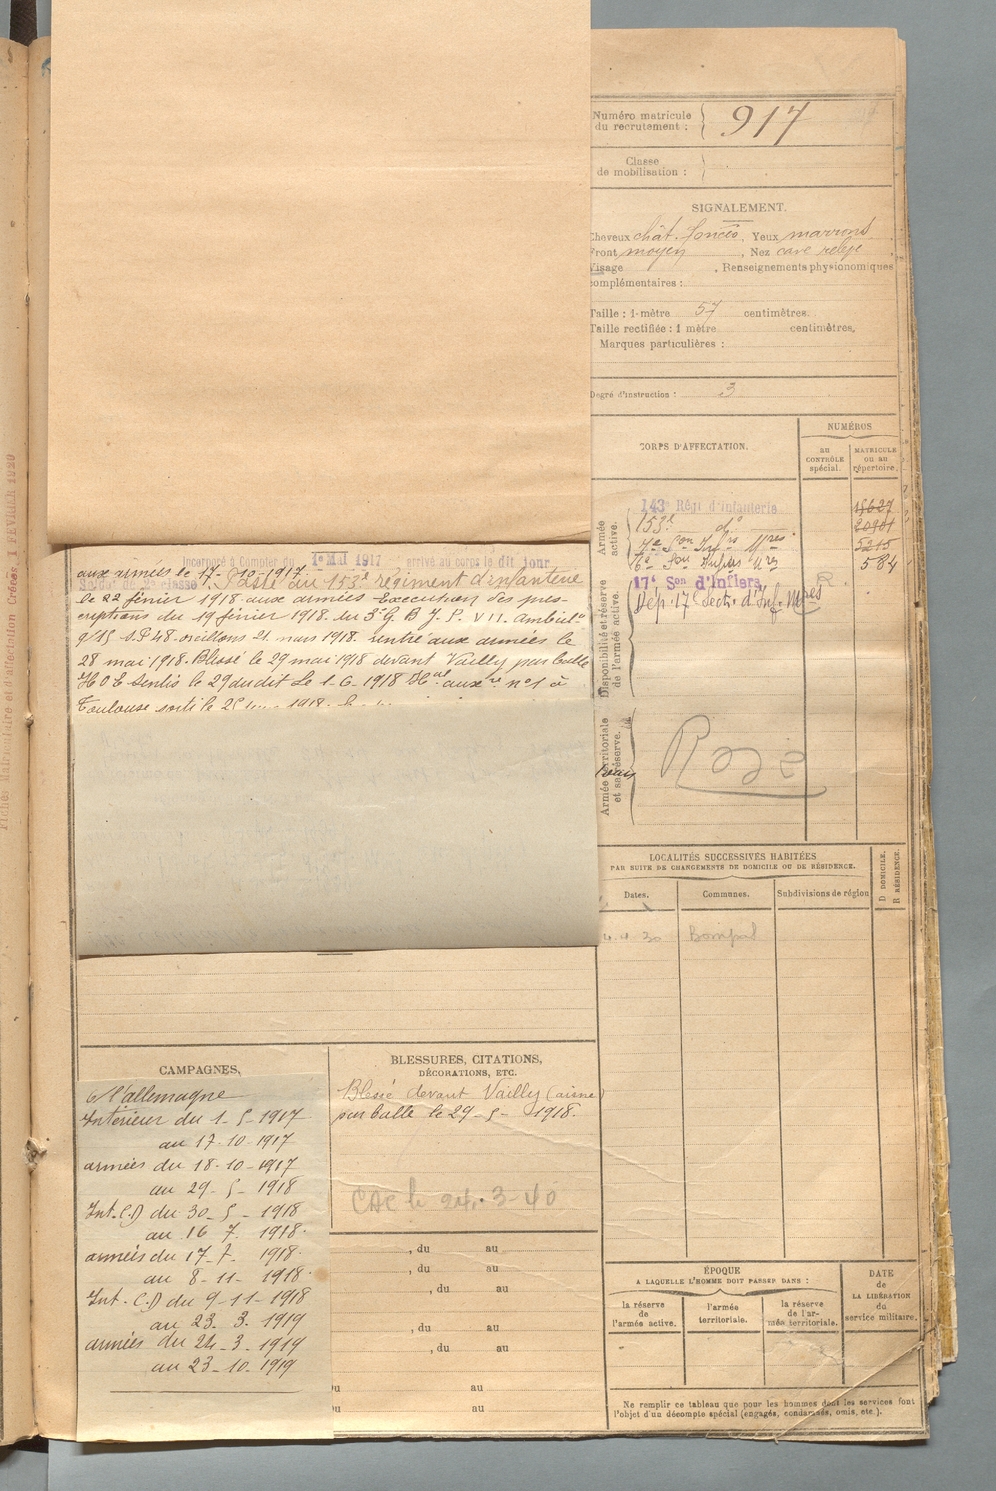 Numéro matricule
du recrutement :
917
Classe
de mobilisation :
SIGNALEMENT.
Cheveux chât. foncés, Yeux marrons
Front moyen, Nez cave relevé
Visage , Renseignements physionomiques
complémentaires :
Taille : 1 mètre 57 centimètres.
Taille rectifiée : 1 mètre centimètres.
Marques particulières :
Degré d'instruction : 3
CORPS D'AFFECTATION.
NUMÉROS
au
CONTRÔLE
spécial.
MATRICULE
ou au
répertoire.
Armée
active.
143e Régt d'infanterie 15627
153e do 20901
7e Son Infrs Mres 5215
16e Son Infirs Mres 584
Disponibilité et réserve
de l'armée active.
17e Son d'Infiers R.
Dép. 17 Secton d'Inf. Mres
Armée territoriale
et sa réserve.
Rosé
LOCALITÉS SUCCESSIVES HABITÉES
PAR SUITE DE CHANGEMENTS DE DOMICILE OU DE RÉSIDENCE.
Dates.
Communes.
Subdivisions de région
D DOMICILE.
R RÉSIDENCE.
4. 30 Bompas
ÉPOQUE
A LAQUELLE L'HOMME DOIT PASSER DANS :
la réserve
de
l'armée active.
l'armée
territoriale.
la réserve
de l'ar-
mée territoriale.
DATE
de
LA LIBÉRATION
du
service militaire.
Ne remplir ce tableau que pour les hommes dont les services font
l'objet d'un décompte spécial (engagés, condamnés, omis, etc.).
Incorporé à Compter du 1e Mai 1917 arrivé au corps le dit jour
Soldat de 2e classe
aux armées le 17-10-1917. Passé au 153e régiment d'infanterie
le 22 février 1918 aux armées Execution des pres-
criptions du 19 février 1918. du 3e G B J. P. VII. Ambulce
9/15 S.P 48 oreillons 21 mars 1918. rentré aux armées le
28 mai 1918. Blessé le 29 mai 1918 devant Vailly par balle
H O E Senlis le 29 dudit Le 1-6-1918 Hal auxre no 1 à
Toulouse sorti le 1918
CAMPAGNES,
c/ l'allemagne
Intérieur du 1-5-1917
au 17-10-1917
armées du 18-10-1917
au 29-5-1918
Int. C.D du 30-5-1918
au 16 7. 1918.
armées du 17-7. 1918.
au 8-11-1918.
Int. C.D du 9-11-1918
au 23. 3. 1919
armées du 24-3-1919
au 23-10-1919
BLESSURES, CITATIONS,
DÉCORATIONS, ETC.
Blessé devant Vailly (aisne)
par balle le 29-5-1918.
CAC le 24.3-40
, du au
, du au
, du au
, du au
, du au
du au
du au
Fiches matriculaire et d'affectation Créées 1 FEVRIER 1920